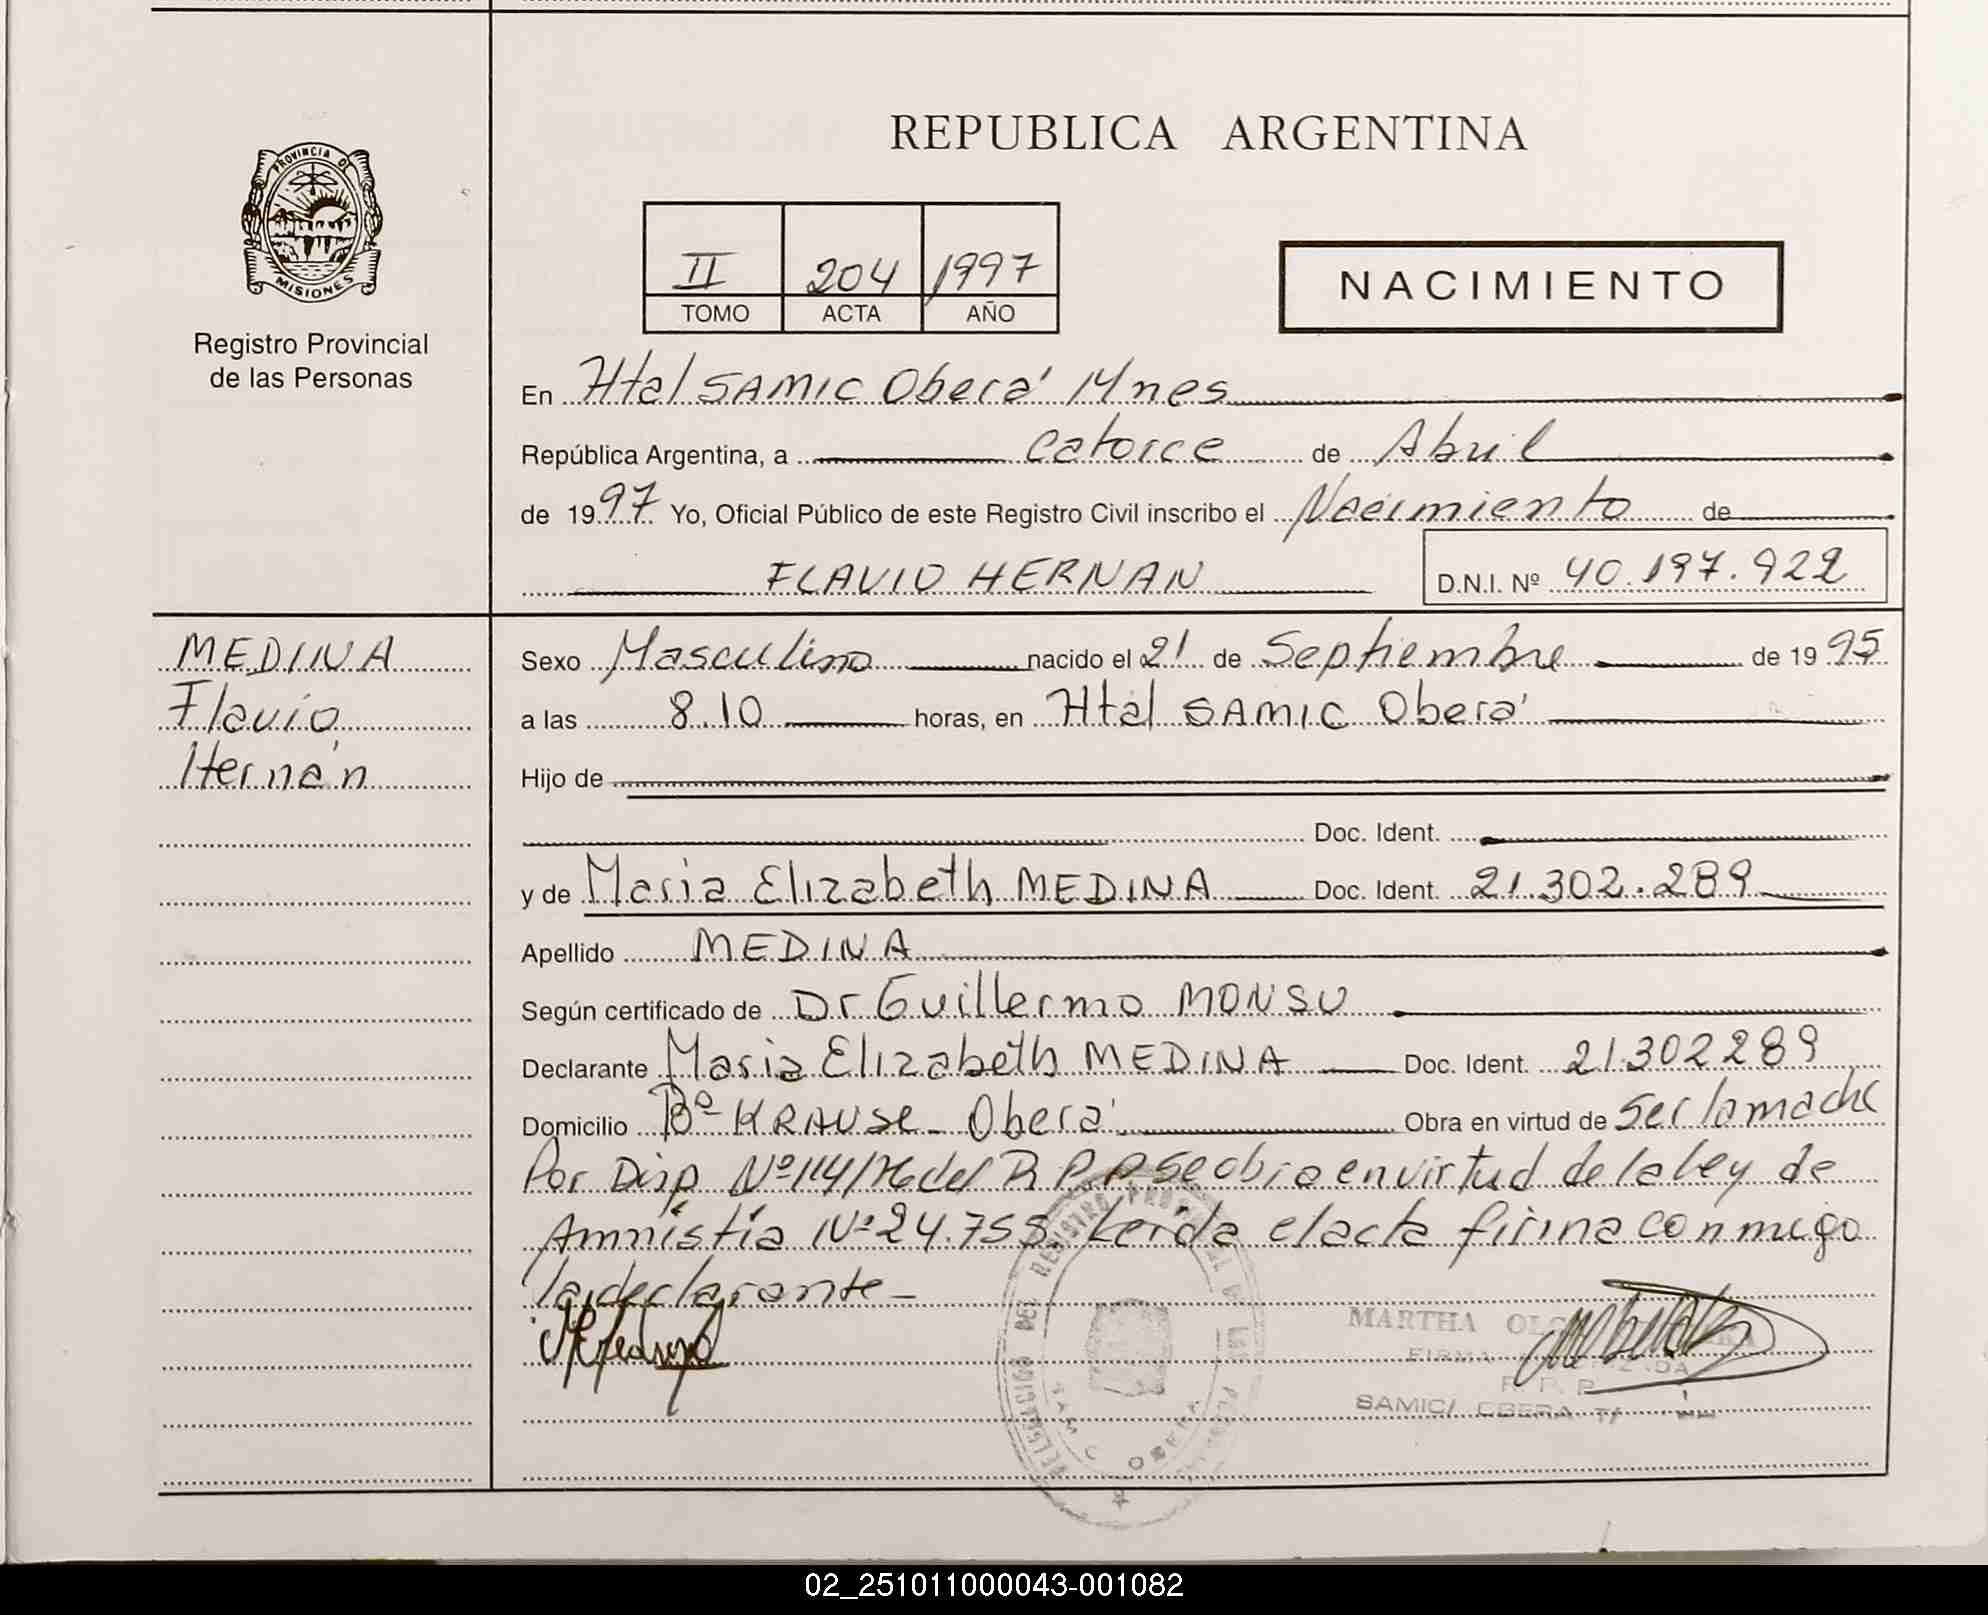 REPUBLICA ARGENTINA
PROVINCIA DE
MISIONES
Registro Provincial
de las Personas
II 204 1997
TOMO ACTA AÑO
NACIMIENTO
En Htal SAMIC Oberá Mnes
República Argentina, a catorce de Abril
de 1997 Yo, Oficial Público de este Registro Civil inscribo el Nacimiento de
FLAVIO HERNAN D.N.I. Nº 40.197.922
MEDINA
Flavio
Hernán
Sexo Masculino nacido el 21 de Septiembre de 1995
a las 8.10 horas, en Htal SAMIC Oberá
Hijo de
Doc. Ident.
y de Maria Elizabeth MEDINA Doc. Ident. 21.302.289
Apellido MEDINA
Según certificado de Dr Guillermo MONSU
Declarante Maria Elizabeth MEDINA Doc. Ident. 21.302289
Domicilio Bº KRAUSE - Oberá Obra en virtud de ser la madre
Por Disp Nº 114/96 del R.P.P se obra en virtud de la ley de
Amnistía Nº 24.755. Leída el acta firma conmigo
la declarante -
MARTHA
R. P. P.
SAMIC/ OBERA
02_251011000043-001082